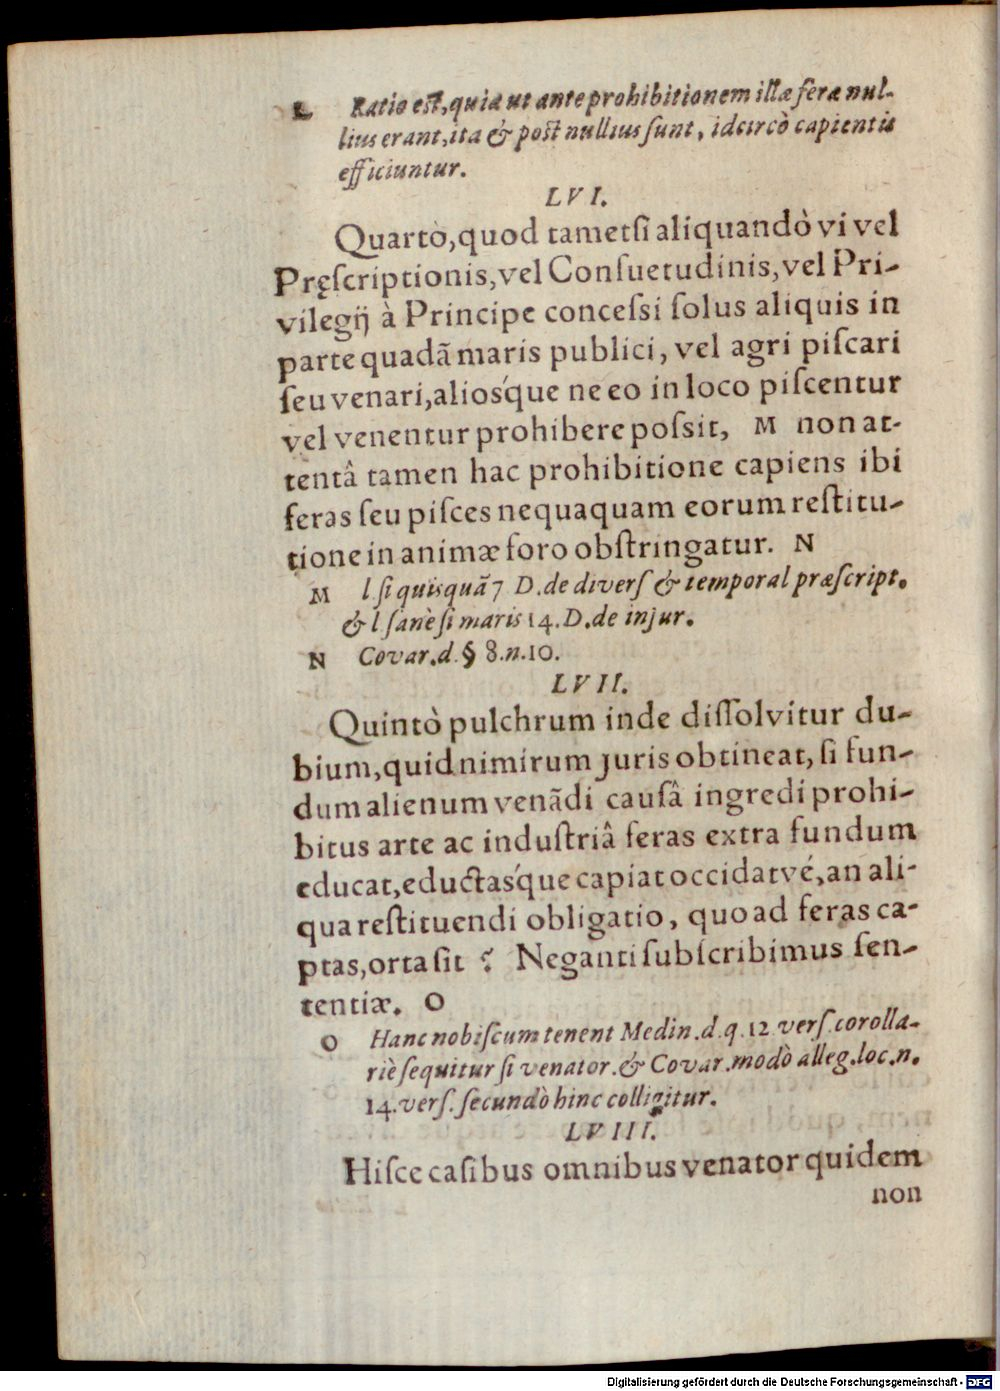 L Ratio est, quia ut ante prohibitionem illæ feræ nul-
lius erant, ita & post nullius sunt, idcircò capientis
efficiuntur.
LVI.
Quartò, quod tametsi aliquandò vi vel
Pręſcriptionis, vel Conſuetudinis, vel Pri-
vilegij à Principe conceſſi ſolus aliquis in
parte quadã maris publici, vel agri piſcari
ſeu venari, alioſq́ue ne eo in loco piſcentur
vel venentur prohibere poſsit, M non at-
tentâ tamen hac prohibitione capiens ibi
feras ſeu piſces nequaquam eorum reſtitu-
tione in animæ foro obſtringatur. N
M l ſi quisquã 7 D. de diverſ & temporal præſcript.
& l ſanè ſi maris 14. D. de injur.
N Covar. d. § 8. n. 10.
LVII.
Quintò pulchrum inde diſſolvitur du-
bium, quid nimirum juris obtineat, ſi fun-
dum alienum venãdi cauſâ ingredi prohi-
bitus arte ac induſtriâ feras extra fundum
educat, eductaſq́ue capiat occidatvé, an ali-
qua reſtituendi obligatio, quoad feras ca-
ptas, orta ſit ? Neganti ſubſcribimus ſen-
tentiæ. O
O Hanc nobiſcum tenent Medin. d. q. 12 verſ. corolla-
riè ſequitur ſi venator. & Covar. modò alleg. loc. n.
14. verſ. ſecundò hinc colligitur.
LVIII.
Hiſce caſibus omnibus venator quidem
non
Digitalisierung gefördert durch die Deutsche Forschungsgemeinschaft - DFG